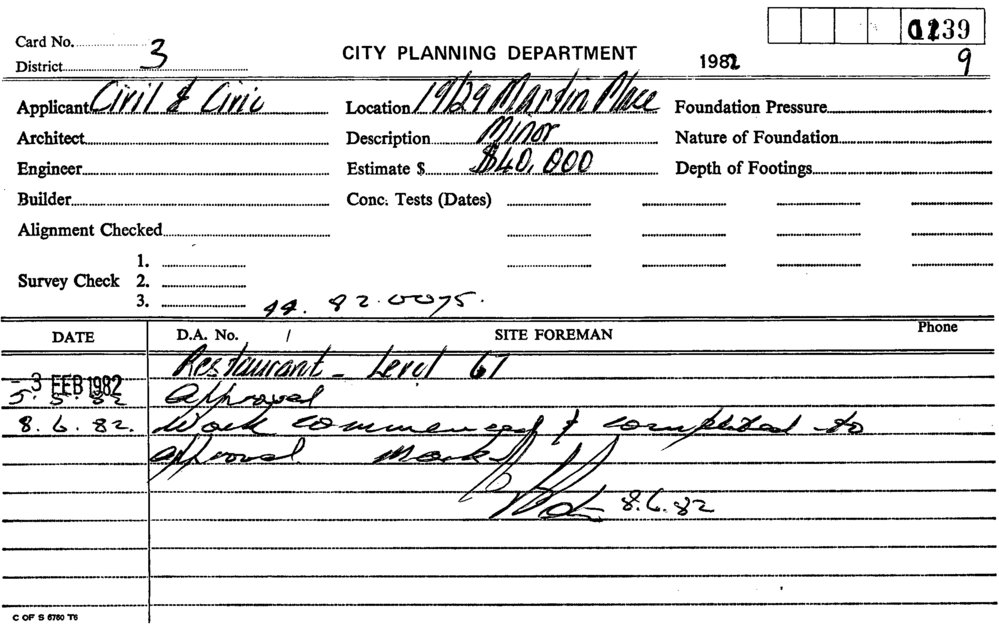 0239
Card No. 3
CITY PLANNING DEPARTMENT
1982
9
District
Applicant Civil & Civic
Location 19/29 Martin Place
Foundation Pressure
Architect
Description Minor
Nature of Foundation
Engineer
Estimate $ $40,000
Depth of Footings
Builder
Conc. Tests (Dates)
Alignment Checked
Survey Check
1.
2.
3.
44. 82.0075.
DATE
D.A. No. /
SITE FOREMAN
Phone
Restaurant - Level 67
- 3 FEB 1982
5.5.82 Approval
8.6.82. Work commenced & completed to
approval. Marks
8.6.82
C OF S 6780 T6